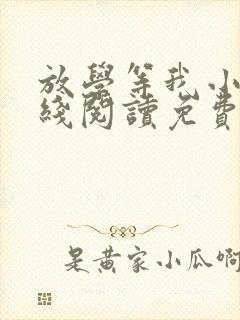 放學等我小
綫閱讀免費
是黄家小瓜啊